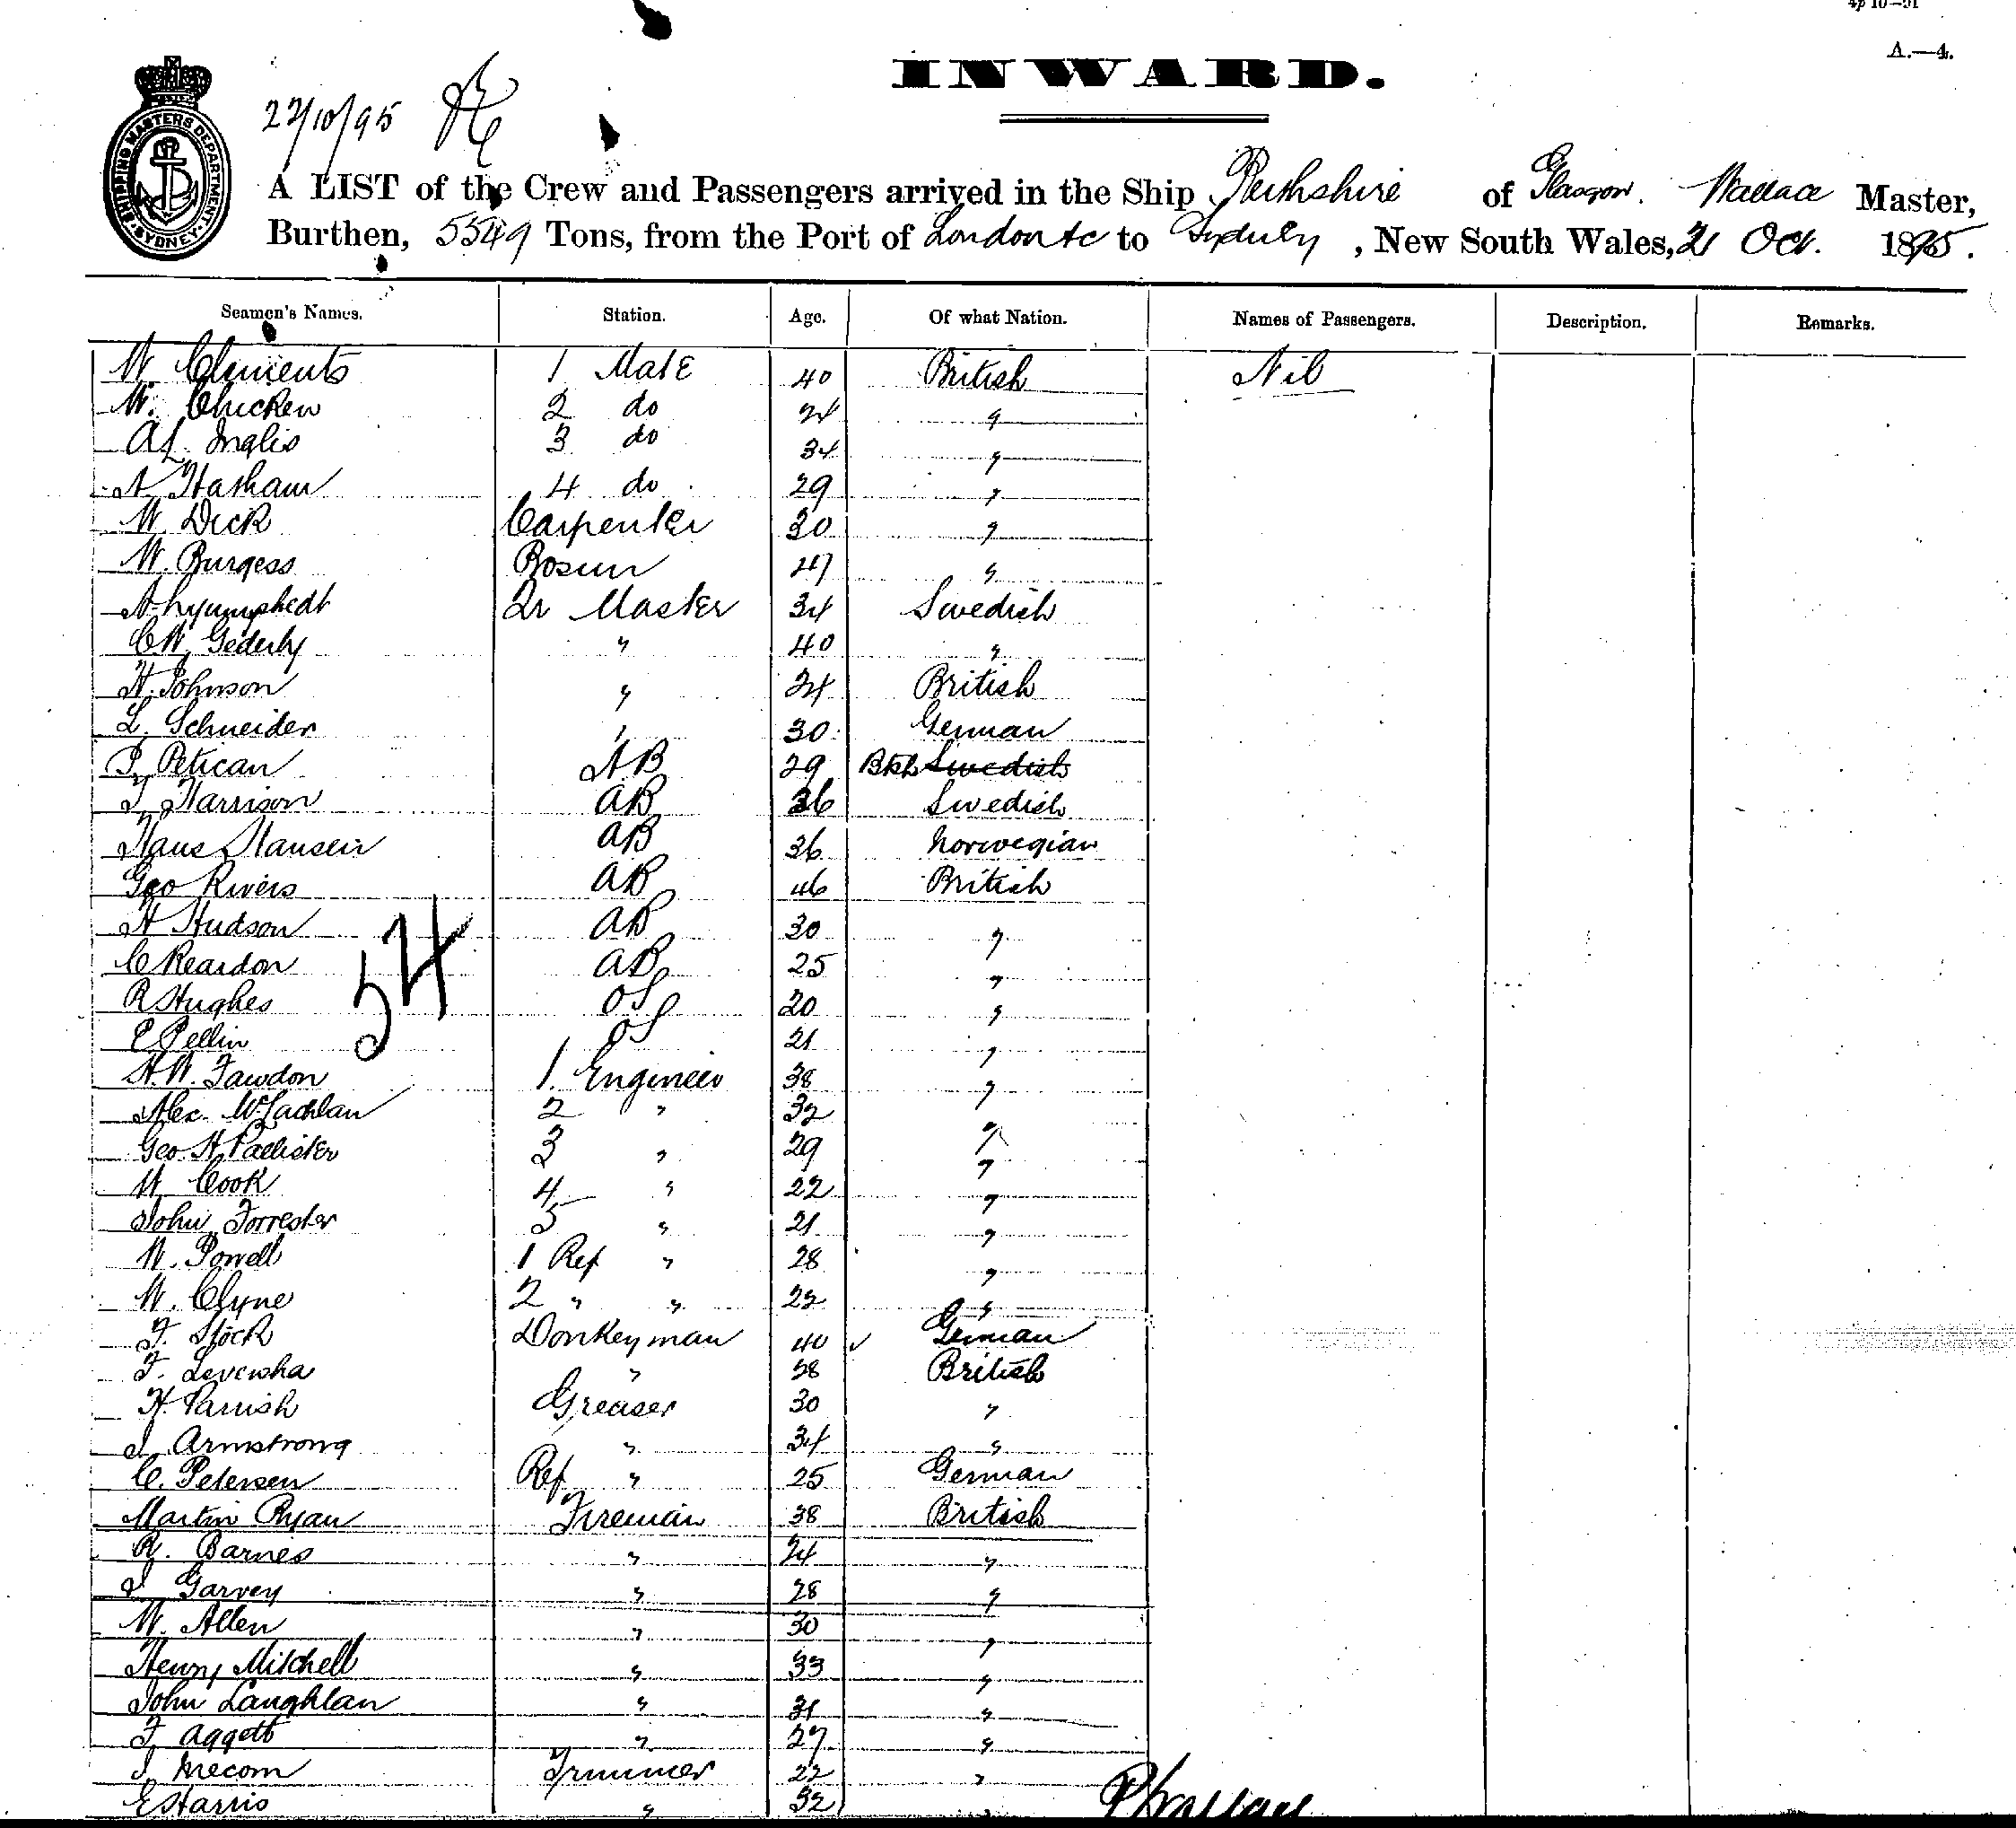 A.—4.
INWARD.
SHIPPING MASTERS DEPARTMENT SYDNEY
22/10/95
A LIST of the Crew and Passengers arrived in the Ship Perthshire of Glasgow. Wallace Master,
Burthen, 5549 Tons, from the Port of London &c to Sydney, New South Wales, 21 Oct. 1895.
Seamen's Names. Station. Age. Of what Nation. Names of Passengers. Description. Remarks.
W. Clements 1 Mate 40 British Nil
W. Chicken 2 do 24 "
A L. Inglis 3 do 34 "
A Hatham 4 do 29 "
W. Dick Carpenter 30 "
W. Burgess Bosun 47 "
Qr Master 34 Swedish
C W. Gederly " 40 "
H. Johnson " 24 British
L. Schneider " 30 German
P. Petican AB 29 Btsh Swedish
T. Harrison AB 36 Swedish
Hans Hansen AB 36 Norwegian
Geo Rivers AB 46 British
H Hudson AB 30 "
C Reardon AB 25 "
R Hughes OS 20 "
E Pellin OS 21 "
54
H. W. Fawdon 1. Engineer 38 "
Alec. McLachlan 2 " 32 "
Geo. H. Pallister 3 " 29 "
W Cook 4 " 22 "
John Forrester 5 " 21 "
W. Powell 1 Ref " 28 "
W. Clyne 2 " " 22 "
F. Stock Donkeyman 40 German
F. " 38 British
H. Parrish Greaser 30 "
J. Armstrong " 34 "
C. Petersen Ref " 25 German
Martin Ryan Fireman 38 British
R. Barnes " 24 "
J Garvey " 28 "
W. Allen " 30 "
Henry Mitchell " 33 "
John Laughlan " 31 "
F. Aggett " 27 "
J. Trimmer 22 "
E Harris " 32 "
P Wallace